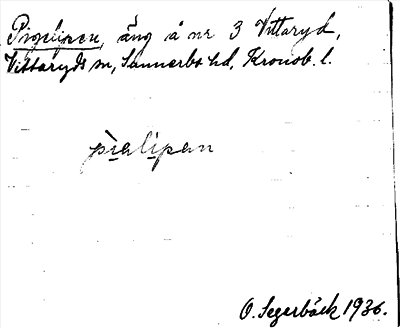 Pigelipen, äng å nr 3 Vittaryd,
Vittaryds sn, Sunnerbo hd, Kronob. l.
pialipan
O. Segerbäck 1936.